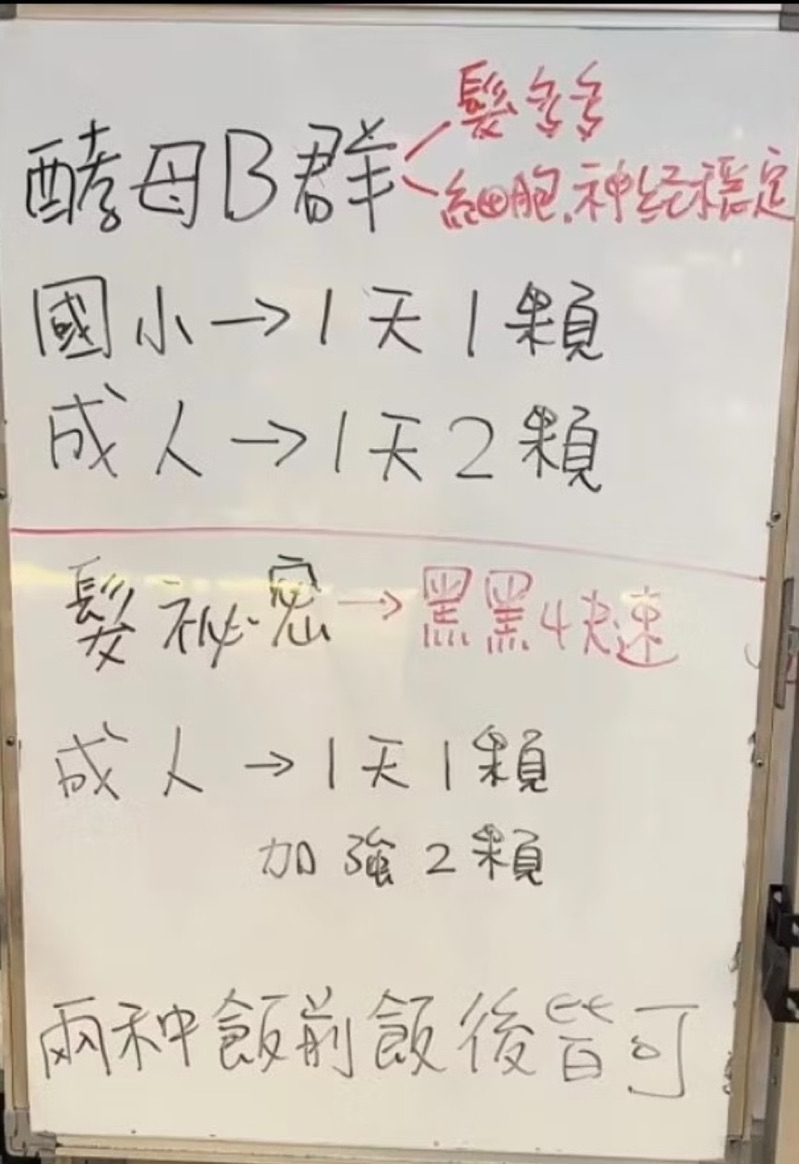 酵母B群
髮多多
細胞.神経穩定
國小→1天1顆
成人→1天2顆
髮祕密→黑黑快速
成人→1天1顆
加強2顆
兩种飯前飯後皆可